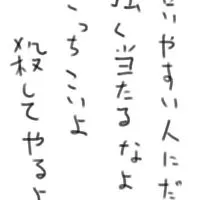 言いやすい人にだ
強く当たるなよ
こっちこいよ
殺してやるよ